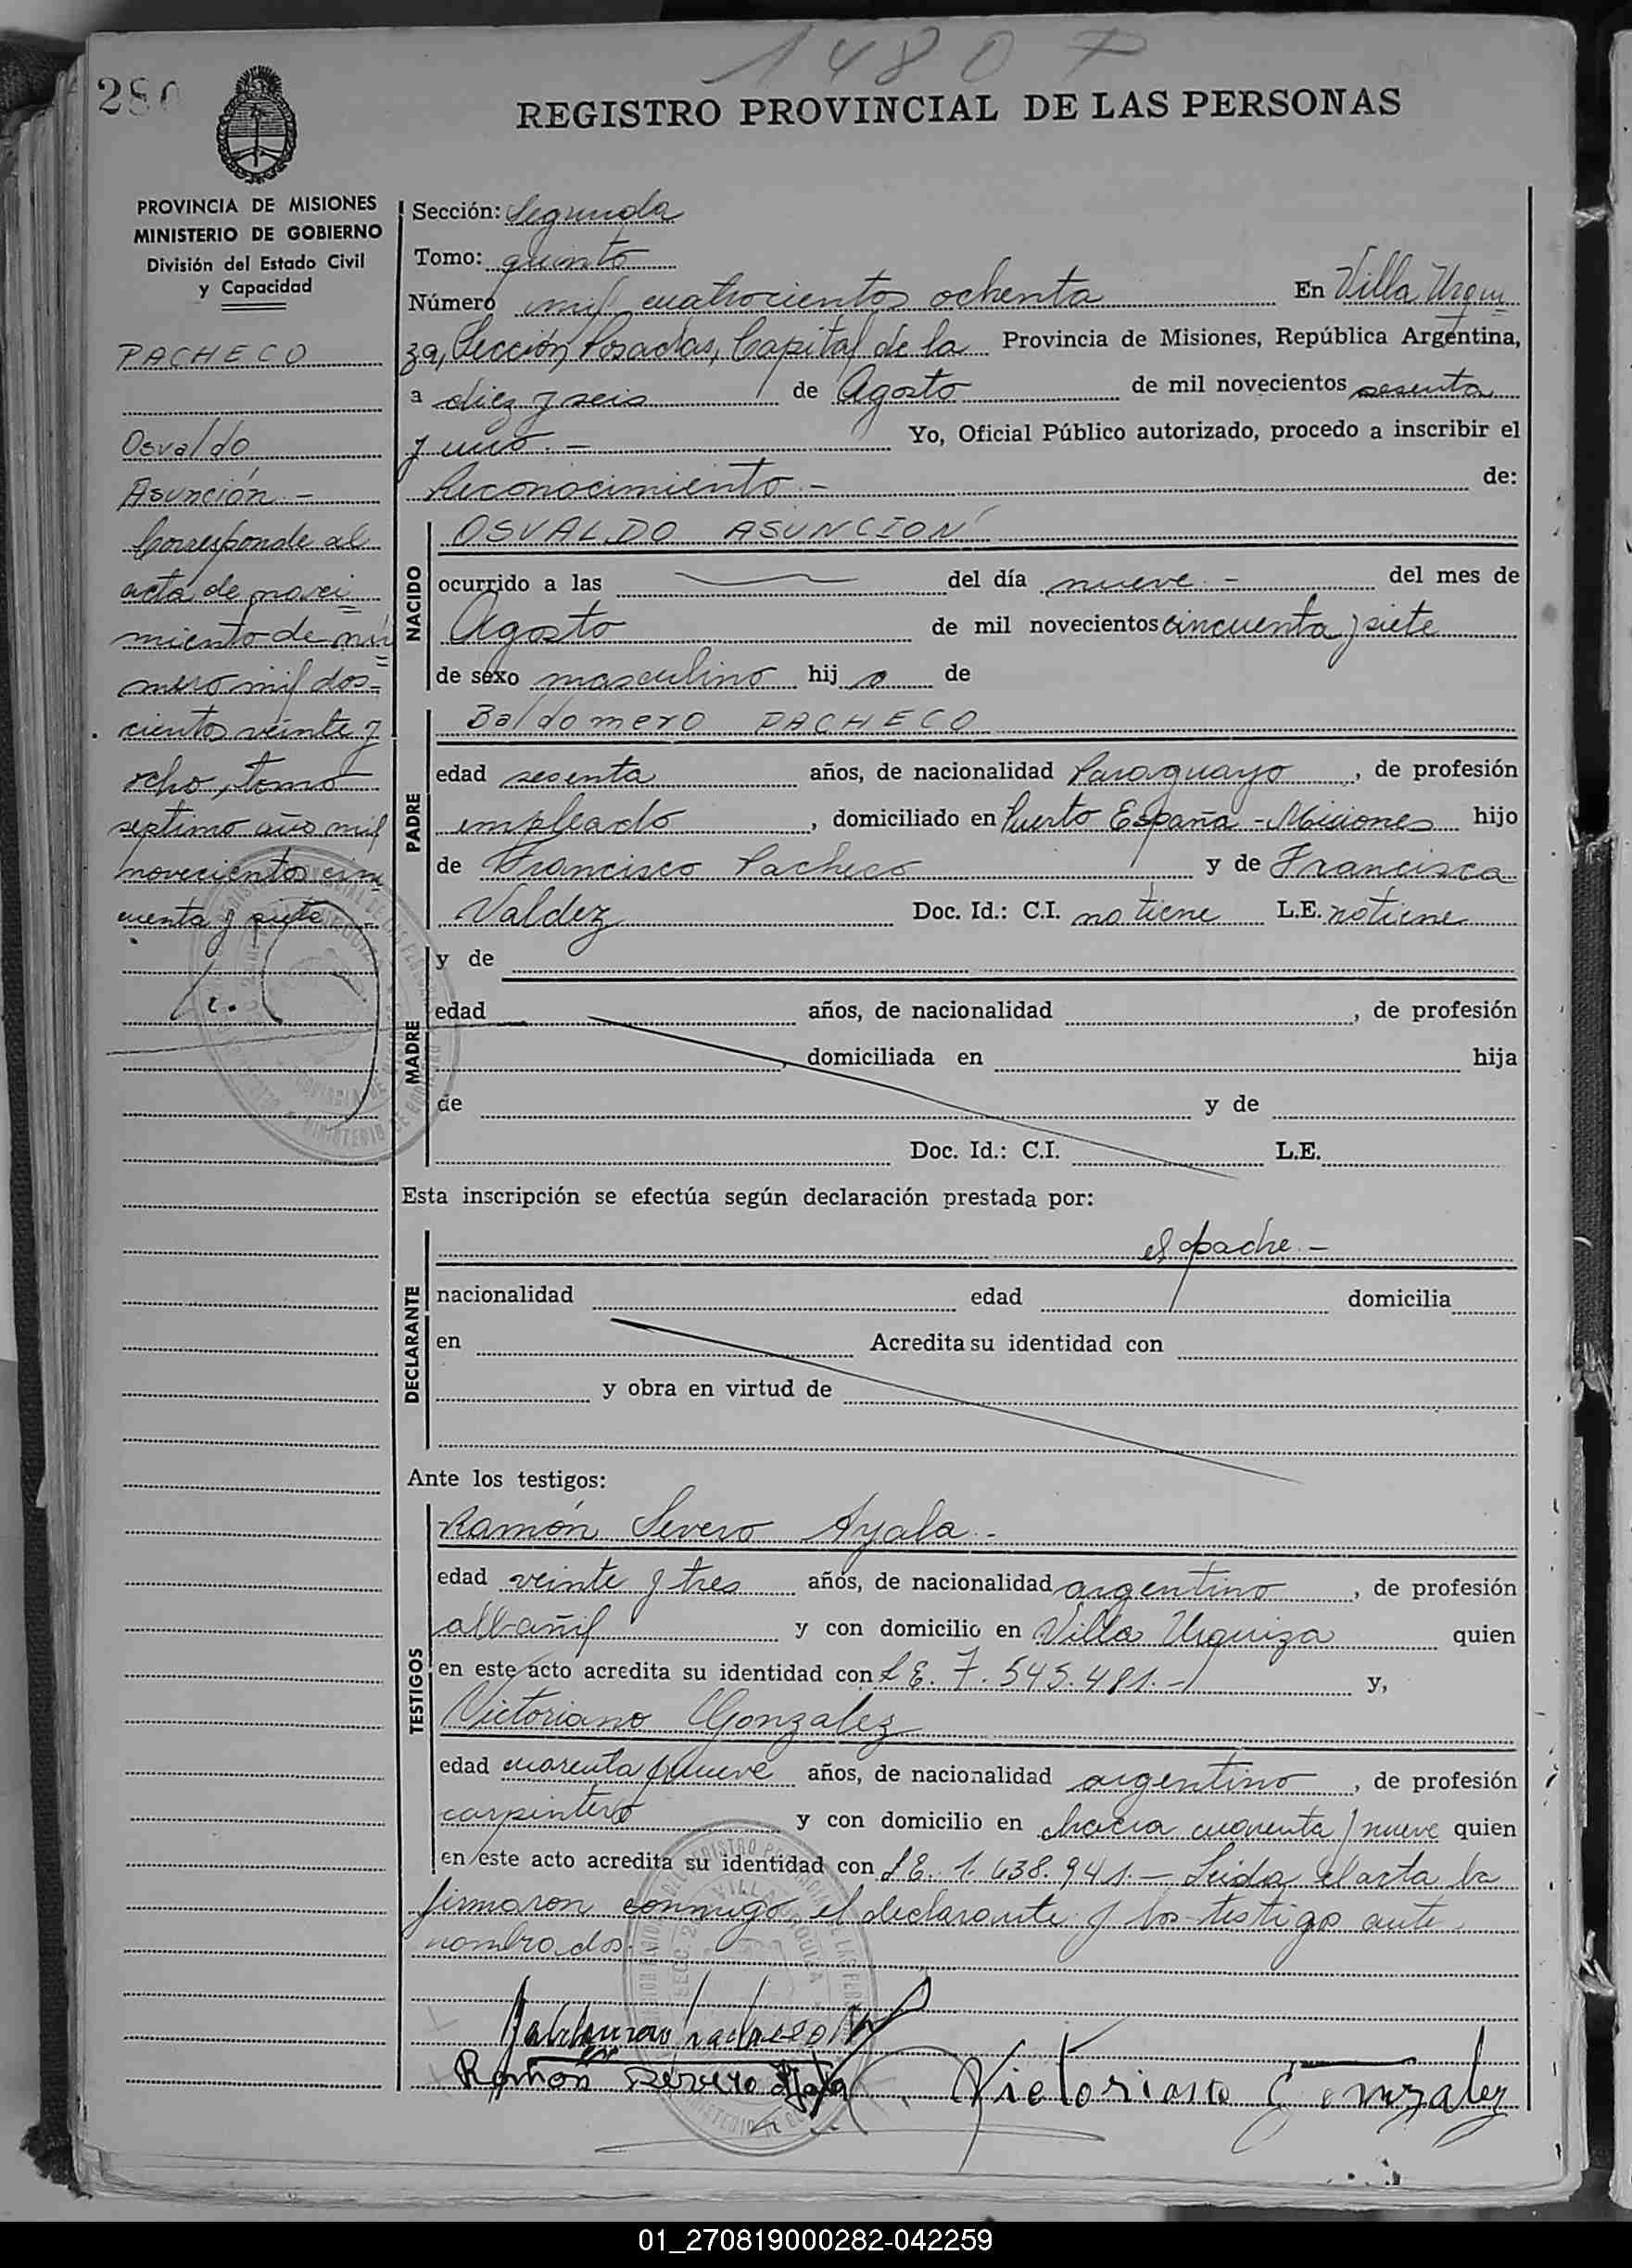 1480
280
REGISTRO PROVINCIAL DE LAS PERSONAS
PROVINCIA DE MISIONES
MINISTERIO DE GOBIERNO
División del Estado Civil
y Capacidad
PACHECO
Osvaldo
Asunción.-
Corresponde al
acta de naci
miento de nú
mero mil dos=
cientos veinte y
ocho, tomo
septimo año mil
novecientos cin
cuenta y siete
Sección: Segunda
Tomo: quinto
Número mil cuatrocientos ochenta En Villa Urqui
za, Sección Posadas, Capital de la Provincia de Misiones, República Argentina,
a diez y seis de Agosto de mil novecientos sesenta
y uno.- Yo, Oficial Público autorizado, procedo a inscribir el
Reconocimiento.- de:
NACIDO
OSVALDO ASUNCIÓN
ocurrido a las del día nueve.- del mes de
Agosto de mil novecientos cincuenta y siete
de sexo masculino hij o de
PADRE
Baldomero PACHECO
edad sesenta años, de nacionalidad Paraguayo, de profesión
empleado, domiciliado en Puerto España - Misiones hijo
de Francisco Pacheco y de Francisca
Valdez Doc. Id.: C.I. no tiene L.E. no tiene
MADRE
y de
edad años, de nacionalidad , de profesión
, domiciliada en hija
de y de
Doc. Id.: C.I. L.E.
Esta inscripción se efectúa según declaración prestada por:
DECLARANTE
el padre.-
nacionalidad edad domicilia
en Acredita su identidad con
y obra en virtud de
Ante los testigos:
TESTIGOS
Ramón Severo Ayala.-
edad veinte y tres años, de nacionalidad argentino, de profesión
albañil y con domicilio en Villa Urquiza quien
en este acto acredita su identidad con L.E. 7.545.481.- y,
Victoriano Gonzalez
edad cuarenta y nueve años, de nacionalidad argentino, de profesión
carpintero y con domicilio en chacra cuarenta y nueve quien
en este acto acredita su identidad con L.E. 1.638.941.- Leida el acta la
firmaron conmigo el declarante y los testigos ante
nombrados.
Ramon Severo Ayala Victoriano Gonzalez
01_270819000282-042259